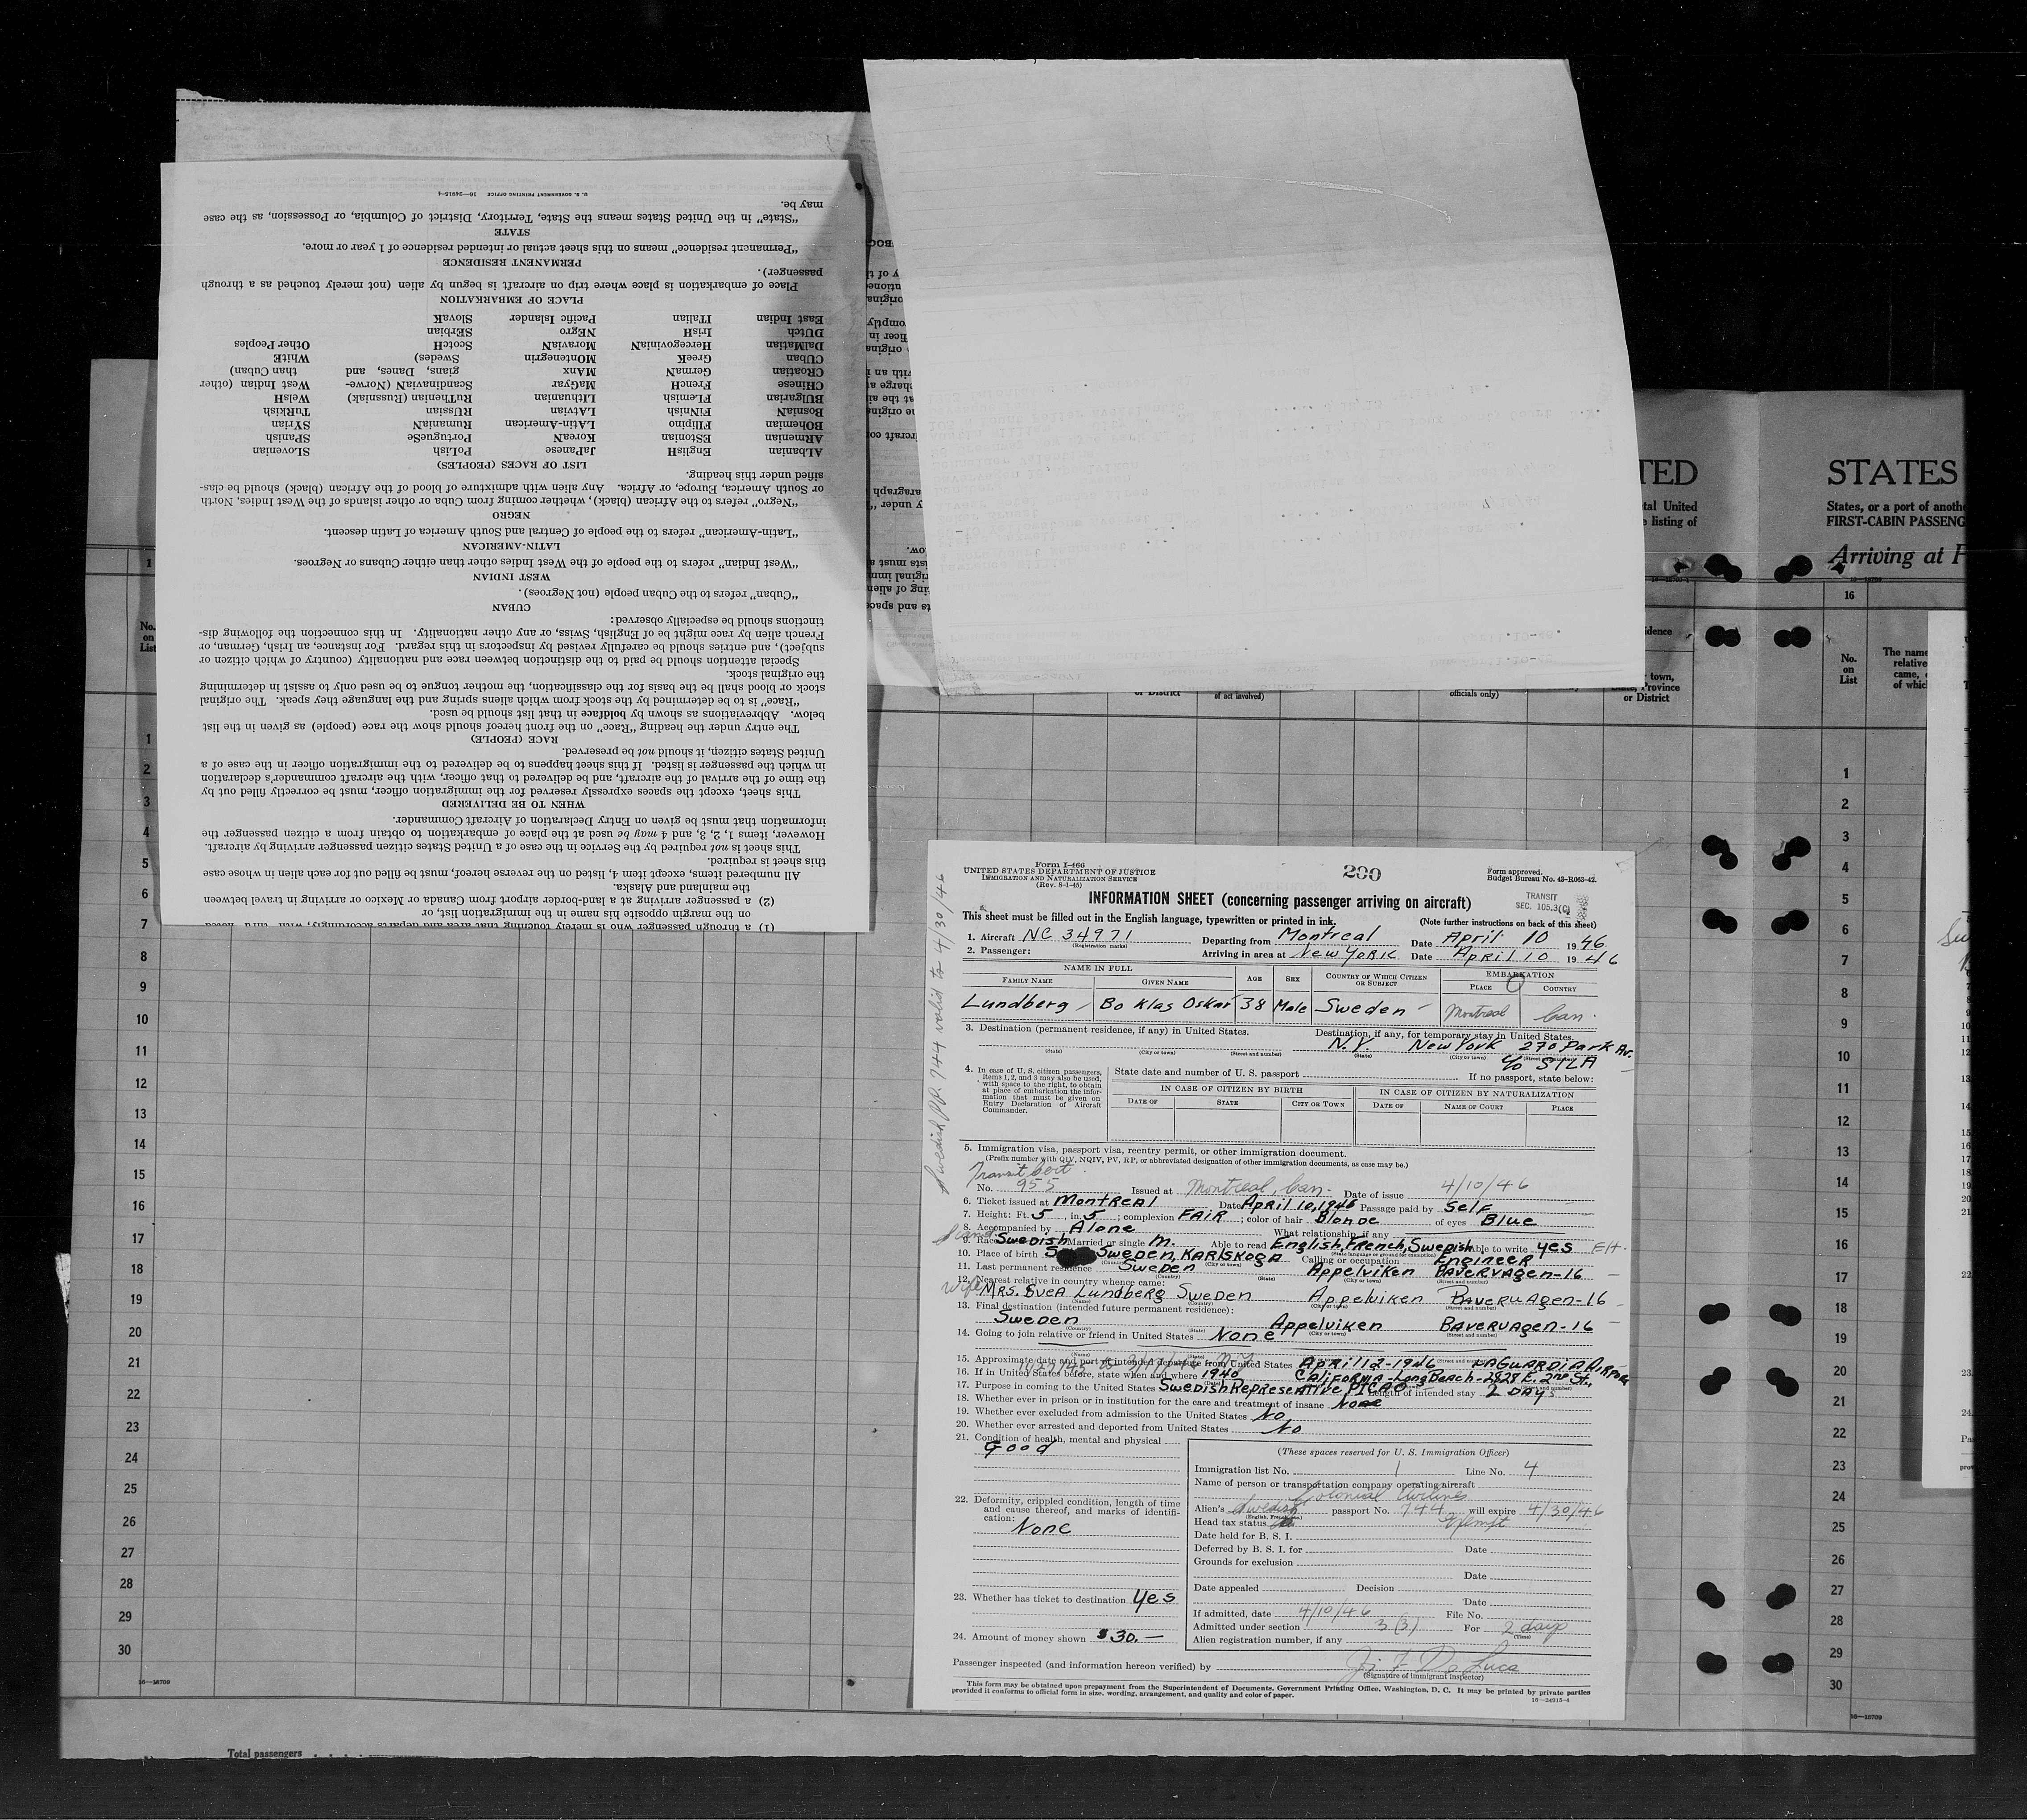 U. S. GOVERNMENT PRINTING OFFICE 16—24915-4
(1) a through passenger who is merely touching that area and departs accordingly, with
on the margin opposite his name in the immigration list, or
(2) a passenger arriving at a land-border airport from Canada or Mexico or arriving in travel between
the mainland and Alaska.
All numbered items, except item 4, listed on the reverse hereof, must be filled out for each alien in whose case
this sheet is required.
This sheet is not required by the Service in the case of a United States citizen passenger arriving by aircraft.
However, items 1, 2, 3, and 4 may be used at the place of embarkation to obtain from a citizen passenger the
information that must be given on Entry Declaration of Aircraft Commander.
WHEN TO BE DELIVERED
This sheet, except the spaces expressly reserved for the immigration officer, must be correctly filled out by
the time of the arrival of the aircraft, and be delivered to that officer, with the aircraft commander's declaration
in which the passenger is listed. If this sheet happens to be delivered to the immigration officer in the case of a
United States citizen, it should not be preserved.
RACE (PEOPLE)
The entry under the heading "Race" on the front hereof should show the race (people) as given in the list
below. Abbreviations as shown by boldface in that list should be used.
"Race" is to be determined by the stock from which aliens spring and the language they speak. The original
stock or blood shall be the basis for the classification, the mother tongue to be used only to assist in determining
the original stock.
Special attention should be paid to the distinction between race and nationality (country of which citizen or
subject), and entries should be carefully revised by inspectors in this regard. For instance, an Irish, German, or
French alien by race might be of English, Swiss, or any other nationality. In this connection the following dis-
tinctions should be especially observed:
CUBAN
"Cuban" refers to the Cuban people (not Negroes).
WEST INDIAN
"West Indian" refers to the people of the West Indies other than either Cubans or Negroes.
LATIN-AMERICAN
"Latin-American" refers to the people of Central and South America of Latin descent.
NEGRO
"Negro" refers to the African (black), whether coming from Cuba or other islands of the West Indies, North
or South America, Europe, or Africa. Any alien with admixture of blood of the African (black) should be clas-
sified under this heading.
LIST OF RACES (PEOPLES)
ALbanian EngliSH JaPanese PoLish SLovenian
ARmenian EStonian KoreaN PortugueSe SPanish
BOhemian FIlipino LAtin-American RumaniaN SYrian
BosniaN FiNnish LAtvian RUssian TuRKish
BUlgarian FLemish LIthuanian RuThenian (Russniak) WelsH
CHinese FrencH MaGyar ScandinaviaN (Norwe- West Indian (other
CROatian GermaN MAnx gians, Danes, and than Cuban)
CUban GreeK MOntenegrin Swedes) WhitE
DalMatian HercegoviniaN MoraviaN ScotcH Other Peoples
DUtch IrisH NEgro SErbian
East Indian ITalian Pacific Islander SlovaK
PLACE OF EMBARKATION
Place of embarkation is place where trip on aircraft is begun by alien (not merely touched as a through
passenger).
PERMANENT RESIDENCE
"Permanent residence" means on this sheet actual or intended residence of 1 year or more.
STATE
"State" in the United States means the State, Territory, District of Columbia, or Possession, as the case
may be.
STATES
States, or a port of anoth
FIRST-CABIN PASSENG
Arriving at
TED
tal United
listing of
No. on List
or District
of act involved)
officials only)
town,
State, Province
or District
16
The name
relative
came,
of which
1 2 3 4 5 6 7 8 9 10 11 12 13 14 15 16 17 18 19 20 21 22 23 24 25 26 27 28 29 30
16—18709
Total passengers
Form I-466
UNITED STATES DEPARTMENT OF JUSTICE
IMMIGRATION AND NATURALIZATION SERVICE
(Rev. 8-1-45)
200
Form approved.
Budget Bureau No. 43-R063-42.
INFORMATION SHEET (concerning passenger arriving on aircraft)
TRANSIT
SEC. 105.3(C)
This sheet must be filled out in the English language, typewritten or printed in ink.
(Note further instructions on back of this sheet)
1. Aircraft NC 34971 (Registration marks) Departing from Montreal Date April 10 1946
2. Passenger: Arriving in area at New York Date April 10 1946
NAME IN FULL
FAMILY NAME GIVEN NAME AGE SEX COUNTRY OF WHICH CITIZEN OR SUBJECT EMBARKATION PLACE COUNTRY
Lundberg Bo Klas Oskar 38 Male Sweden Montreal Can.
3. Destination (permanent residence, if any) in United States. Destination, if any, for temporary stay in United States.
N.Y. New York 270 Park Av.
(State) (City or town) (Street and number) (State) (City or town) (Street and number)
c/o SILA
4. In case of U. S. citizen passengers, items 1, 2, and 3 may also be used, with space to the right, to obtain at place of embarkation the information that must be given on Entry Declaration of Aircraft Commander.
State date and number of U. S. passport If no passport, state below:
IN CASE OF CITIZEN BY BIRTH IN CASE OF CITIZEN BY NATURALIZATION
DATE OF STATE CITY OR TOWN DATE OF NAME OF COURT PLACE
5. Immigration visa, passport visa, reentry permit, or other immigration document.
(Prefix number with QIV, NQIV, PV, RP, or abbreviated designation of other immigration documents, as case may be.)
Transit Cert.
No. 955 Issued at Montreal, Can- Date of issue 4/10/46
6. Ticket issued at Montreal Date April 10, 1946 Passage paid by Self
7. Height: Ft. 5, in. 5; complexion FAIR; color of hair Blonde of eyes Blue
8. Accompanied by Alone What relationship, if any
9. Race Swedish Married or single M. Able to read English, French, Swedish Able to write yes
10. Place of birth Sweden, KARLSKOGA Calling or occupation Engineer
11. Last permanent residence Sweden Appelviken BAVERVAgen-16
12. Nearest relative in country whence came:
wife Mrs. SveA Lundberg Sweden Appelviken BAVERVAgen-16
13. Final destination (intended future permanent residence):
Sweden Appelviken BAVERVAgen-16
14. Going to join relative or friend in United States None
15. Approximate date and port of intended departure from United States April 12-1946 LAGUARDIA AIRPORT
16. If in United States before, state when and where 1940 CALIFORNIA-Long Beach-2828 E. 2nd St.
17. Purpose in coming to the United States Swedish Representative PICAO Length of intended stay 2 DAys
18. Whether ever in prison or in institution for the care and treatment of insane None
19. Whether ever excluded from admission to the United States No
20. Whether ever arrested and deported from United States No
21. Condition of health, mental and physical
Good
22. Deformity, crippled condition, length of time and cause thereof, and marks of identification:
None
23. Whether has ticket to destination yes
24. Amount of money shown $30.—
(These spaces reserved for U. S. Immigration Officer)
Immigration list No. 1 Line No. 4
Name of person or transportation company operating aircraft
Colonial Airlines
Alien's Swedish passport No. 744 will expire 4/30/46
(English, French, etc.)
Head tax status Exempt
Date held for B. S. I.
Deferred by B. S. I. for Date
Grounds for exclusion
Date
Date appealed Decision
Date
If admitted, date 4/10/46 File No.
Admitted under section 3 (3) For 2 days (Time)
Alien registration number, if any
Passenger inspected (and information hereon verified) by De Luca
(Signature of immigrant inspector)
This form may be obtained upon prepayment from the Superintendent of Documents, Government Printing Office, Washington, D. C. It may be printed by private parties
provided it conforms to official form in size, wording, arrangement, and quality and color of paper.
16—24915-4
Swedish P.P. 744 valid to 4/30/46